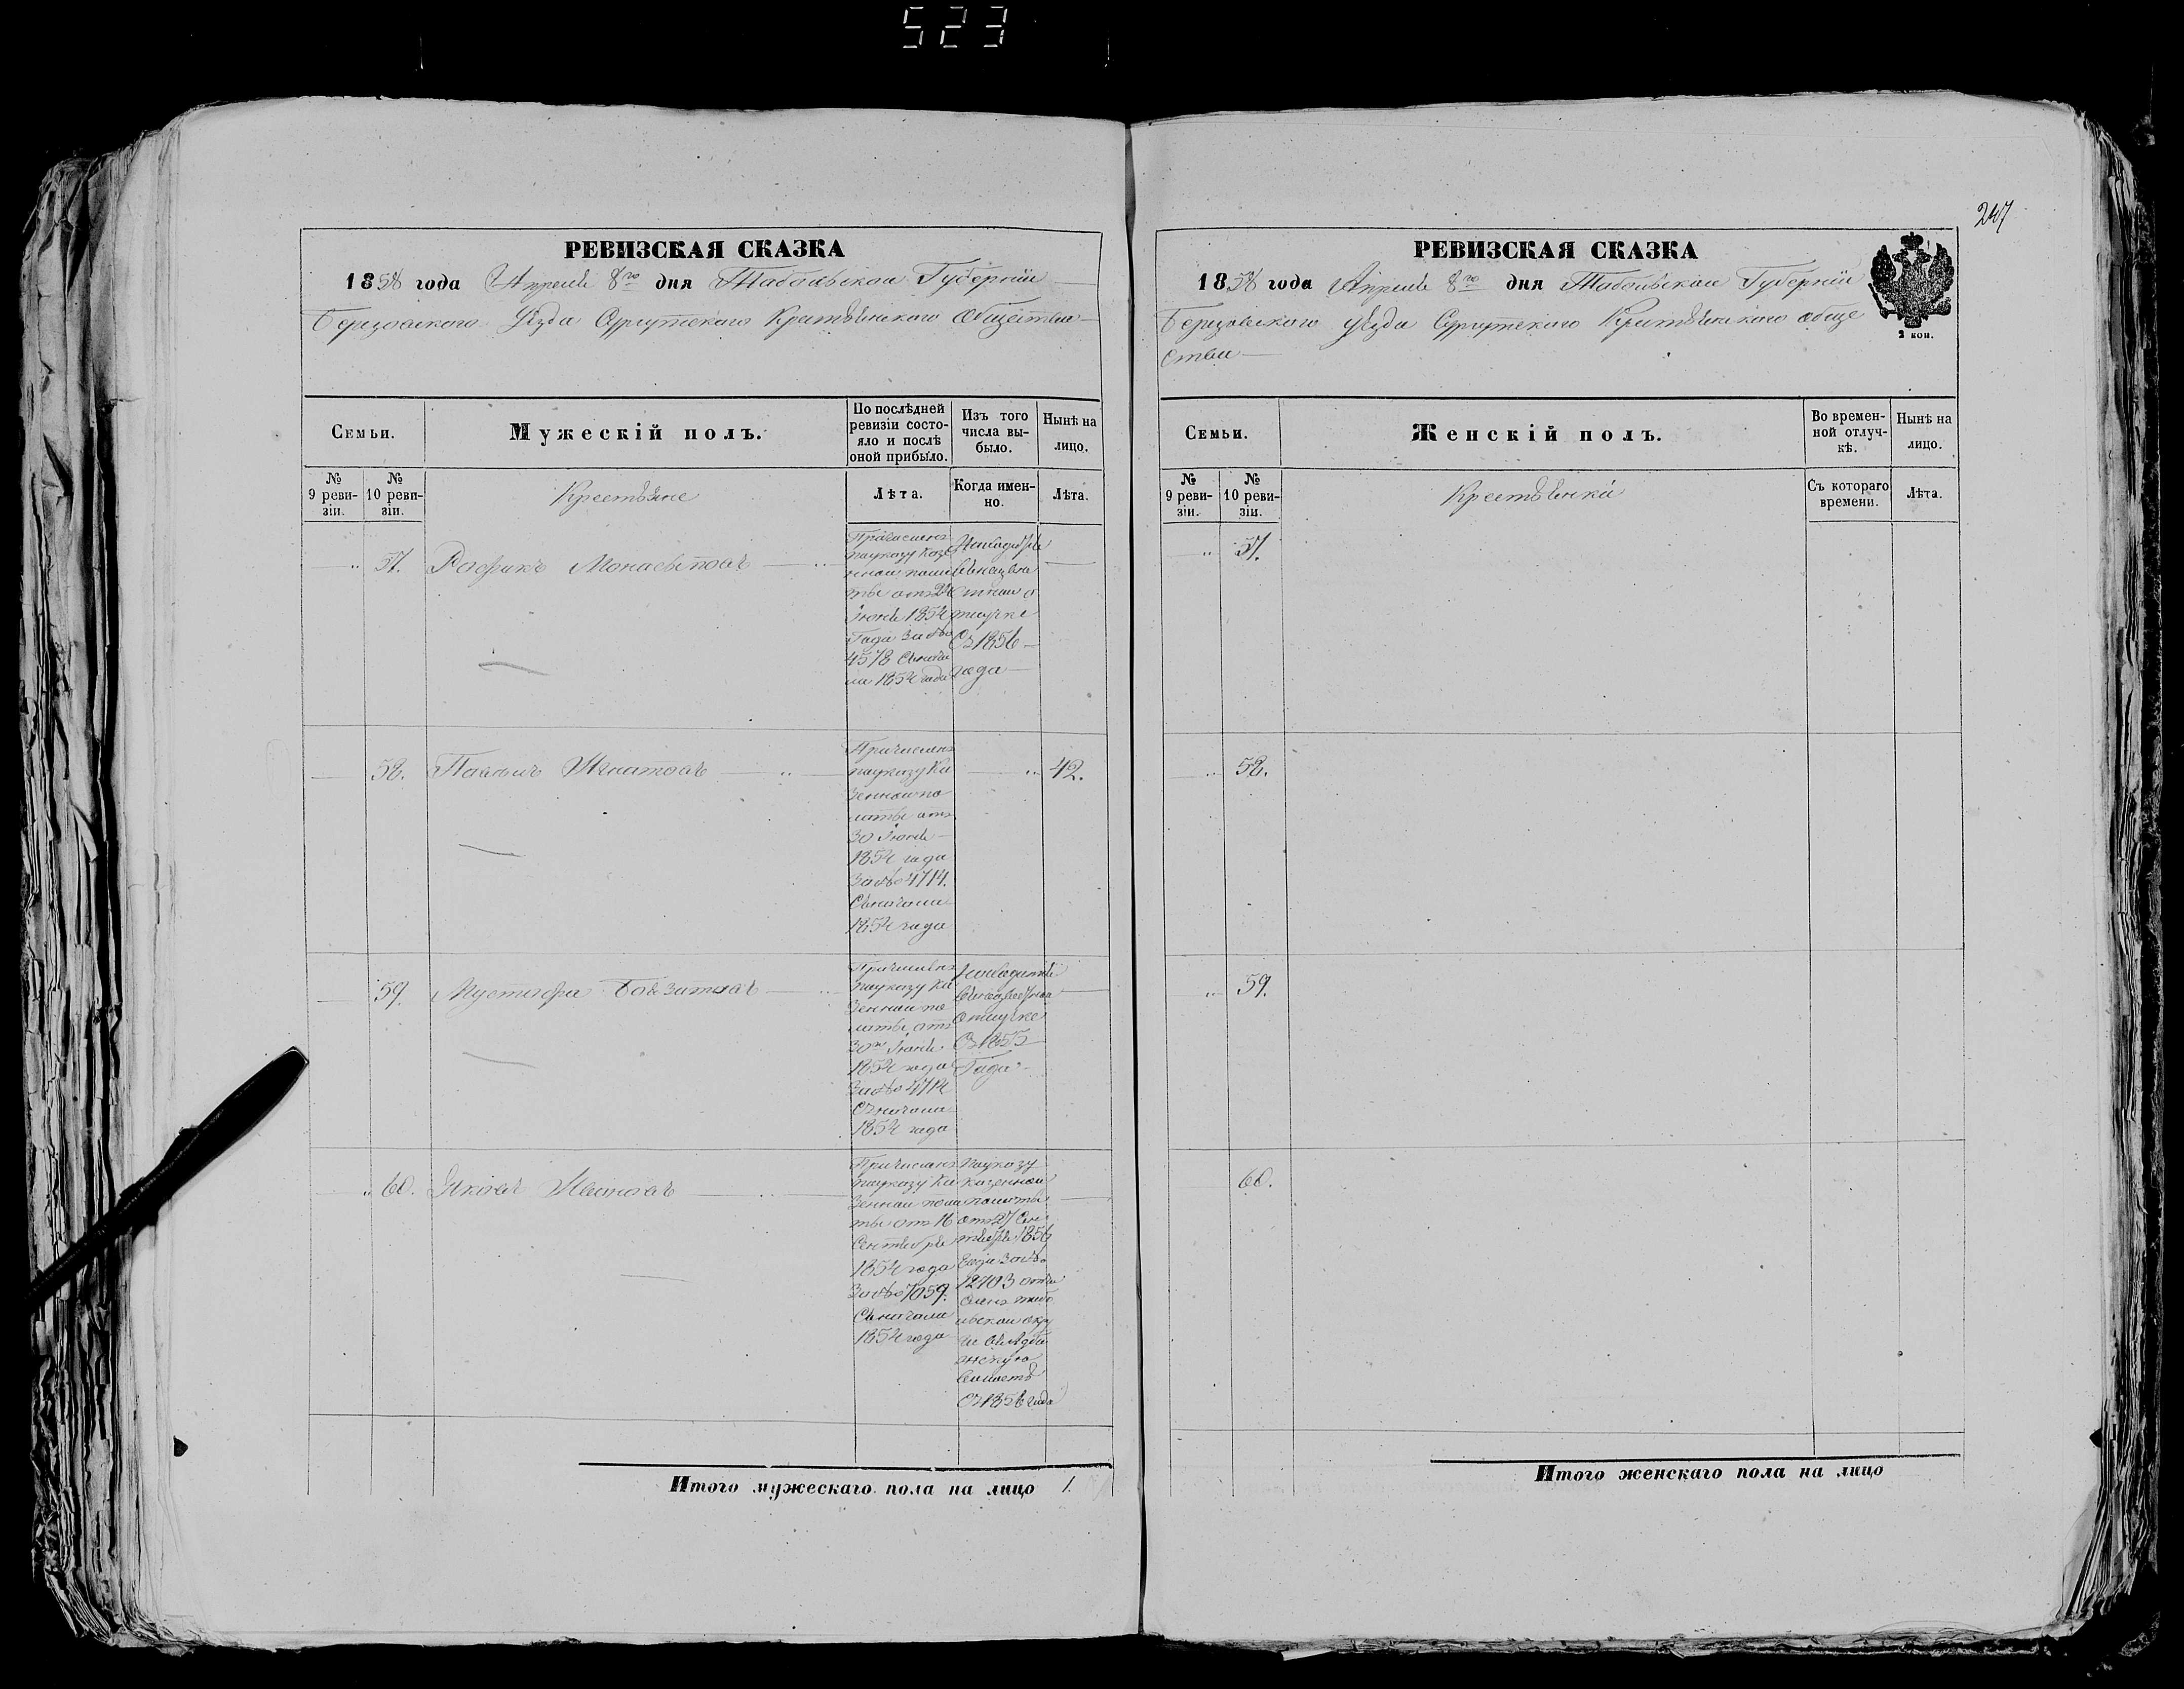 523
247
РЕВИЗСКАЯ СКАЗКА
1858 года Апреля 8го дня Тобольской Губерніи
Березовского Уѣзда Сургутского Крестьянского Общества
Семьи.
Мужескій полъ.
По послѣдней ревизіи состо-
яло и послѣ
оной прибыло.
Изъ того
числа вы-
было.
Нынѣ на
лицо.
№
9 реви-
зіи.
№
10 реви-
зіи.
Крестьяне
Лѣта.
Когда имен-
но.
Лѣта.
57.
Причисленъ
по указу Казе
нной пала
ты отъ
Іюня 1854
Года за №
4578 Съ нача
ла 1854 года
отлучке
Съ 1856
года
58.
Игнатовъ
42.
Причисленъ
по указу Ка
зенной па
латы отъ
30 Іюня
1854 года
За № 4714.
Съ начала
1854 года
59.
Мустафа
Причисленъ
по указу Ка
зенной па
латы отъ
30го Іюня
1854 года
За № 4714
Съ начала
1854 года
Находится
отлучке
Съ 1855
Года
60. Яковъ Ивановъ
Причисленъ
по указу Ка
зенной пала
ты отъ 16
Сентября
1854 года
За № 7059.
Съ начала
1854 года
По указу
Казенной
палаты
отъ 27 Сен
тября 1856
Года За №
12703 отчи
сленъ Тобо
льской окру
волость
Съ 1856 года
Итого мужескаго пола на лицо 1.
РЕВИЗСКАЯ СКАЗКА
1858 года Апреля 8го дня Тобольской Губерніи
Березовского уѣзда Сургутского Крестьянского обще
ства
2 коп.
Семьи.
Женскій полъ.
Во времен-
ной отлуч-
кѣ.
Нынѣ на
лицо.
№
9 реви-
зіи.
№
10 реви-
зіи.
Крестьянки
Съ котораго
времени.
Лѣта.
57.
58.
59.
60.
Итого женскаго пола на лицо